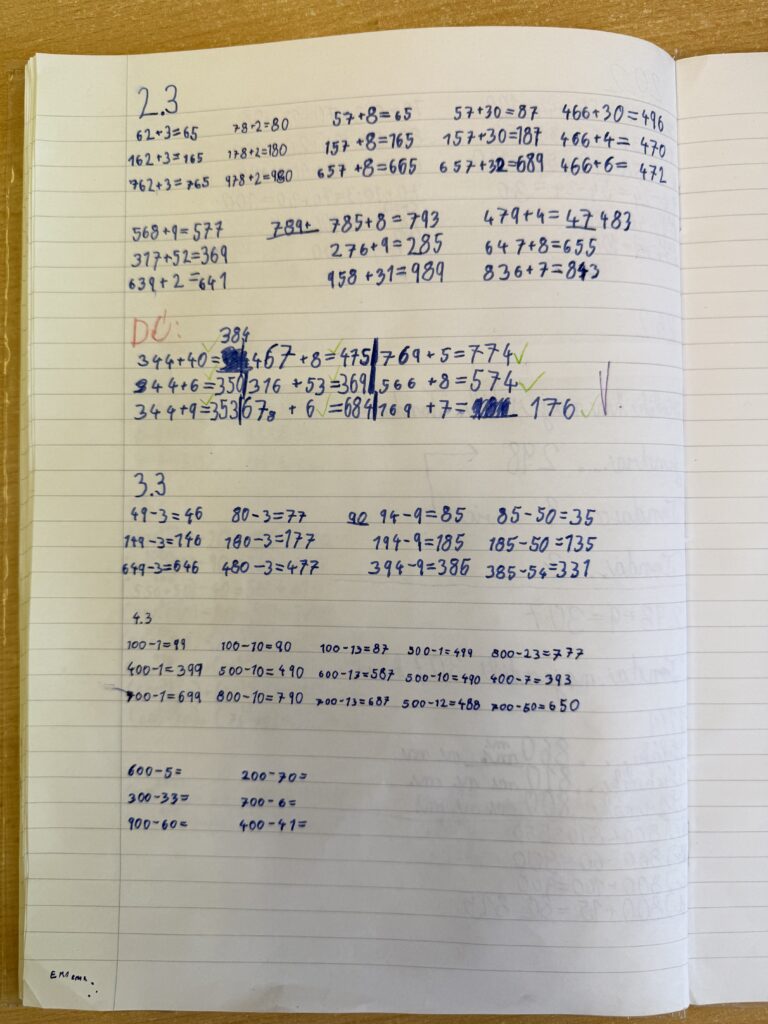 2.3
62+3=65 78+2=80 57+8=65 57+30=87 466+30=496
162+3=165 178+2=180 157+8=165 157+30=187 466+4=470
762+3=765 978+2=980 657+8=665 657+32=689 466+6=472
568+9=577 789+ 785+8=793 479+4=47 483
317+52=369 276+9=285 647+8=655
639+2=641 958+31=989 836+7=843
DÚ:
384
344+40= 467+8=475 769+5=774
344+6=350 316+53=369 566+8=574
344+9=353 678+6=684 169+7= 176
3.3
49-3=46 80-3=77 90 94-9=85 85-50=35
149-3=146 180-3=177 194-9=185 185-50=135
649-3=646 480-3=477 394-9=385 385-54=331
4.3
100-1=99 100-10=90 100-13=87 500-1=499 800-23=777
400-1=399 500-10=490 600-13=587 500-10=490 400-7=393
700-1=699 800-10=790 700-13=687 500-12=488 700-50=650
600-5= 200-70=
300-33= 700-6=
900-60= 400-41=